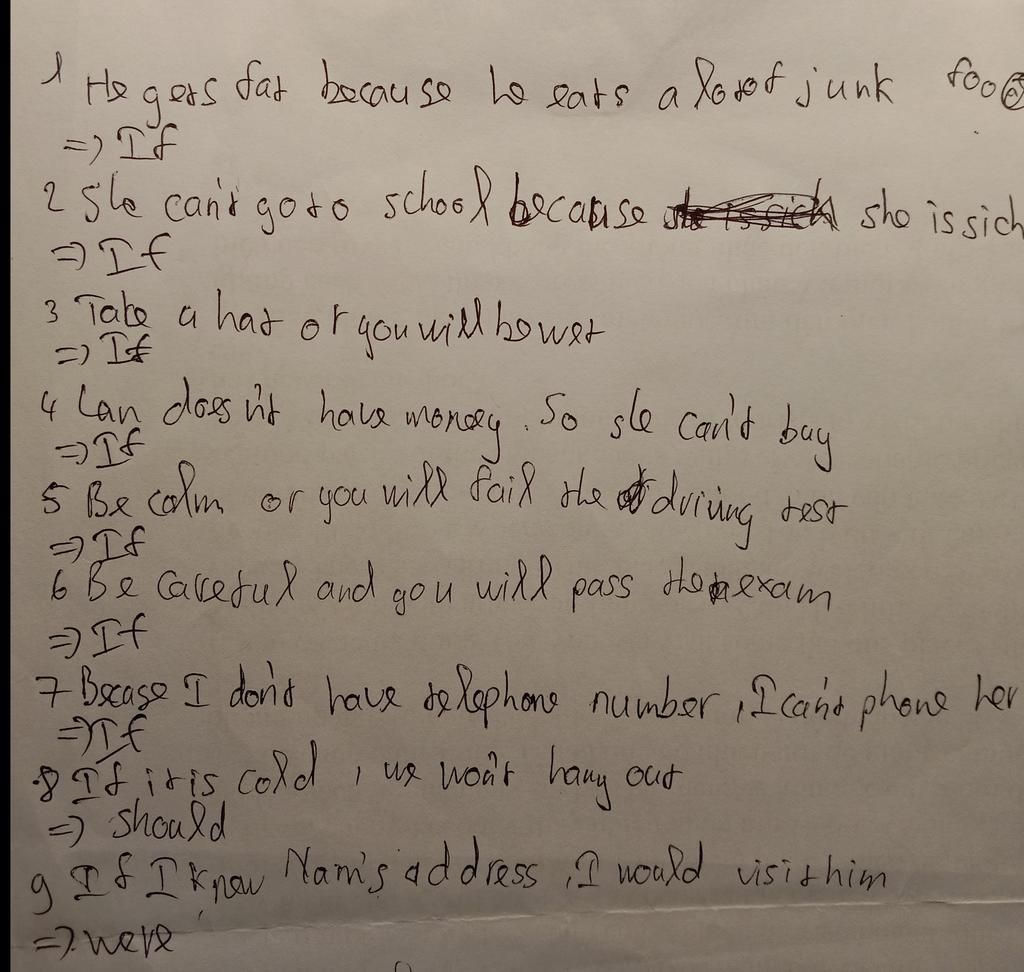 1 He gets fat because he eats a lot of junk food
=> If
2 She can't go to school because she is sick
=> If
3 Take a hat or you will be wet
=> If
4 Lan does n't have money. So she can't buy
=> If
5 Be calm or you will fail the driving test
=> If
6 Be careful and you will pass the exam
=> If
7 Becase I don't have telephone number, I can't phone her
=> If
8 If it is cold, we won't hang out
=> should
9 If I know Nam's address, I would visit him
=> were